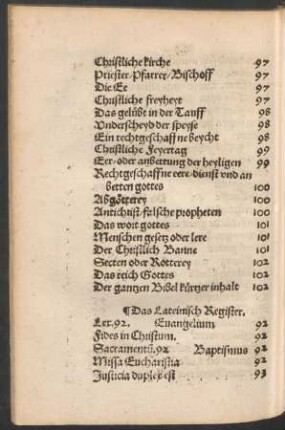 Christliche kirche 97
Priester/Pfarrer/Bischoff 97
Die Ee 97
Christliche freyheyt 97
Das gelübt in der Tauff 98
Vnderscheyd der speyse 98
Ein rechtgeschaffne beycht 98
Christliche Feyertag 99
Eer-oder anbettung der heyligen 99
Rechtgeschaffne eere-dienst vnd an
betten gottes 100
Abgötterey 100
Antichrist-falsche propheten 100
Das wort gottes 101
Menschen gesetz oder lere 101
Der Christlich Banne 101
Secten oder Rotterey 102
Das reich Gottes 102
Der gantzen Bibel kürtzer inhalt 102
¶Das Lateinisch Register.
Lex.92. Euangelium 92
Fides in Christum. 92
Sacramentū.92 Baptismus 92
Missa Eucharistia 92
Justicia duplex est 93